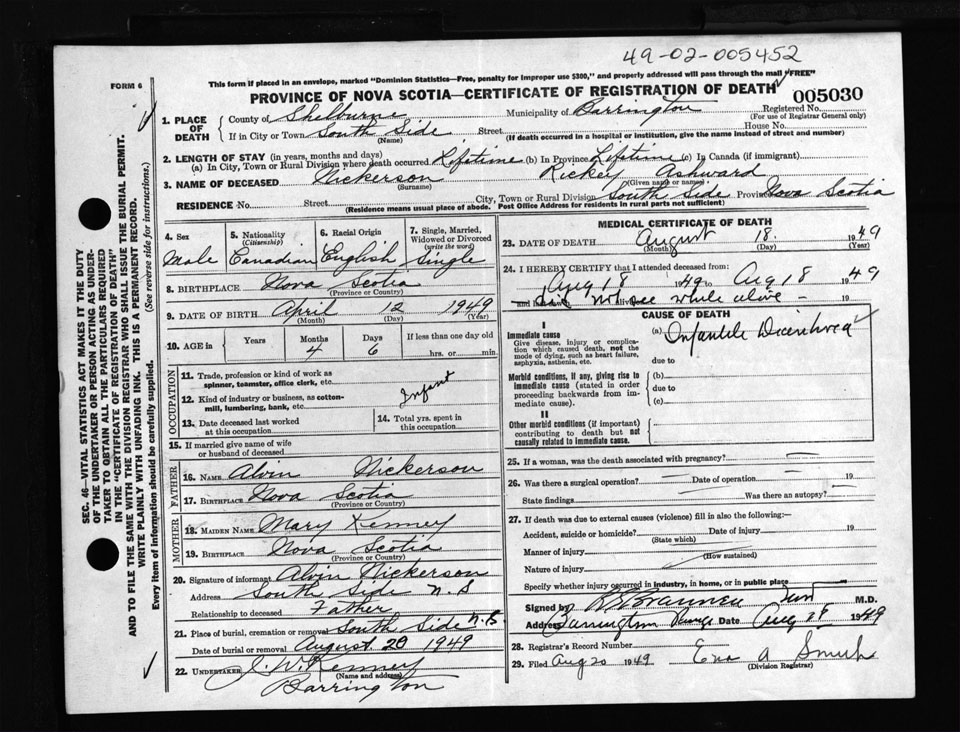 49-02-005452
This form if placed in an envelope, marked "Dominion Statistics—Free, penalty for improper use $300," and properly addressed will pass through the mail "FREE"
FORM 6
PROVINCE OF NOVA SCOTIA—CERTIFICATE OF REGISTRATION OF DEATH
005030
1. PLACE OF DEATH
County of Shelburne Municipality of Barrington Registered No.
(For use of Registrar General only)
If in City or Town South Side Street House No.
(Name) (If death occurred in a hospital or institution, give the name instead of street and number)
2. LENGTH OF STAY (in years, months and days)
(a) In City, Town or Rural Division where death occurred Lifetime (b) In Province Lifetime (c) In Canada (if immigrant)
3. NAME OF DECEASED Nickerson Rickey Ashward
(Surname) (Given name or names)
RESIDENCE No. Street City, Town or Rural Division South Side Province Nova Scotia
(Residence means usual place of abode. Post Office Address for residents in rural parts not sufficient)
4. Sex Male
5. Nationality (Citizenship) Canadian
6. Racial Origin English
7. Single, Married, Widowed or Divorced (write the word) Single
8. BIRTHPLACE Nova Scotia
(Province or Country)
9. DATE OF BIRTH April 12 1949
(Month) (Day) (Year)
10. AGE in Years Months 4 Days 6 If less than one day old hrs. or min.
OCCUPATION
11. Trade, profession or kind of work as spinner, teamster, office clerk, etc.
12. Kind of industry or business, as cotton-mill, lumbering, bank, etc.
Infant
13. Date deceased last worked at this occupation
14. Total yrs. spent in this occupation
15. If married give name of wife or husband of deceased
FATHER
16. NAME Alvin Nickerson
17. BIRTHPLACE Nova Scotia
(Province or Country)
MOTHER
18. MAIDEN NAME Mary Kenney
19. BIRTHPLACE Nova Scotia
(Province or Country)
20. Signature of informant Alvin Nickerson
Address South Side N.S
Relationship to deceased Father
21. Place of burial, cremation or removal South Side N.S.
Date of burial or removal August 20 1949
22. UNDERTAKER J. W. Kenney
(Name and address)
Barrington
MEDICAL CERTIFICATE OF DEATH
23. DATE OF DEATH August 18. 1949
(Month) (Day) (Year)
24. I HEREBY CERTIFY that I attended deceased from:
Aug 18 1949 to Aug 18 1949
not see while alive - 19
CAUSE OF DEATH
I
Immediate cause
Give disease, injury or complication which caused death, not the mode of dying, such as heart failure, asphyxia, asthenia, etc.
(a) Infantile
due to
Morbid conditions, if any, giving rise to immediate cause (stated in order proceeding backwards from immediate cause).
(b)
due to
(c)
II
Other morbid conditions (if important) contributing to death but not causally related to immediate cause.
25. If a woman, was the death associated with pregnancy?
26. Was there a surgical operation? Date of operation 19
State findings Was there an autopsy?
27. If death was due to external causes (violence) fill in also the following:—
Accident, suicide or homicide? Date of injury 19
(State which)
Manner of injury
(How sustained)
Nature of injury
Specify whether injury occurred in industry, in home, or in public place
Signed by M.D.
Address Barrington Date Aug 1949
28. Registrar's Record Number
29. Filed Aug 20 1949 A Smith
(Division Registrar)
SEC. 46—VITAL STATISTICS ACT MAKES IT THE DUTY
OF THE UNDERTAKER OR PERSON ACTING AS UNDER-
TAKER TO OBTAIN ALL THE PARTICULARS REQUIRED
IN THE "CERTIFICATE OF REGISTRATION OF DEATH"
AND TO FILE THE SAME WITH THE DIVISION REGISTRAR WHO SHALL ISSUE THE BURIAL PERMIT.
WRITE PLAINLY WITH UNFADING INK. THIS IS A PERMANENT RECORD.
Every item of information should be carefully supplied. (See reverse side for instructions.)